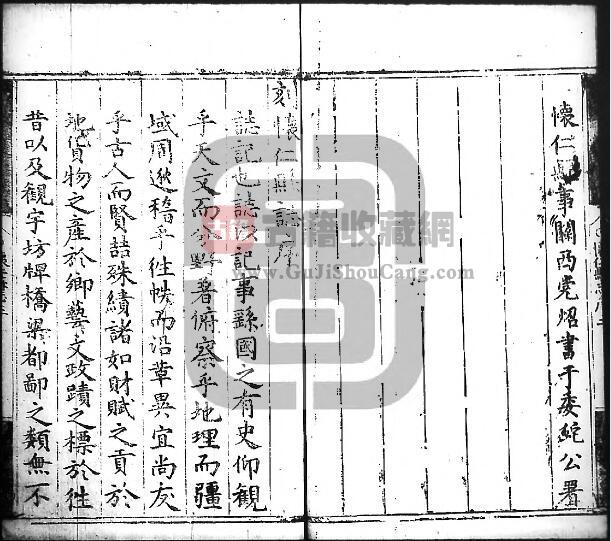 懷仁縣事關西党炤書于委蛇公署
刻懷仁縣誌序
誌記也誌以記事猶國之有史仰觀
乎天文而分野著俯察乎地理而疆
域周遊稽乎徃帙而沿革異宜尚友
乎古人而賢語殊績諸如財賦之貢於
地貨物之産於鄉藝文政蹟之標於徃
昔以及觀宇坊牌橋梁都鄙之類無不
古籍收藏网
www.GuJiShouCang.com